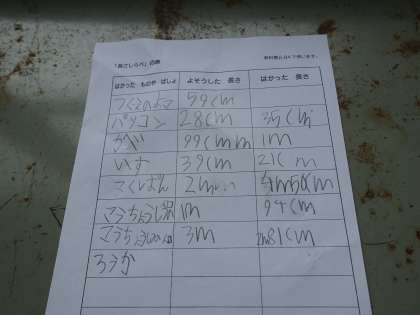 「長さしらべ」の表
はかった ものや ばしょ よそうした 長さ はかった 長さ
つくえのよこ 59cm
パソコン 28cm 35cm
かべ 99cm 1m
いす 39cm 21cm
こくばん 2m 4m50cm
こうちょう 1m 94cm
こうちょう 3m 2m81cm
ろうか